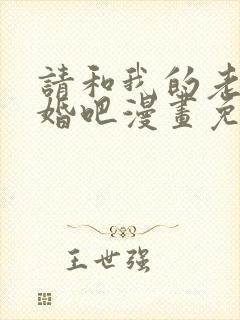 請和我的老
婚吧漫畫免
王世强